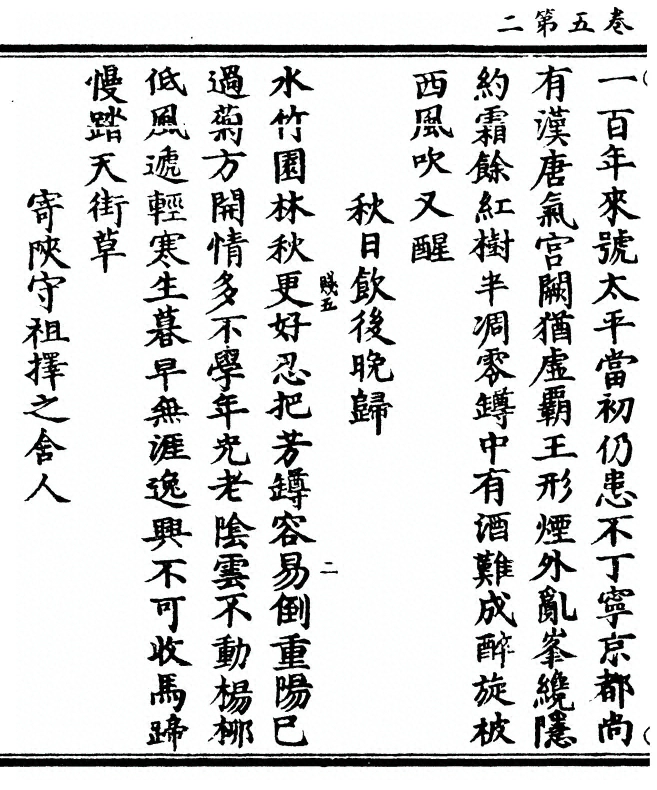 二第五卷
一百年來號太平當初仍患不丁寧京都尚
有漢唐氣宮闕猶虛霸王形煙外亂峯纔隱
約霜餘紅樹半凋零罇中有酒難成醉旋被
西風吹又醒
秋日飲後晚歸
水竹園林秋更好忍把芳罇容易倒重陽已
過菊方開情多不學年光老陰雲不動楊柳
低風遞輕寒生暮早無涯逸興不可收馬蹄
慢踏天街草
寄陝守祖擇之舍人
賤五
二